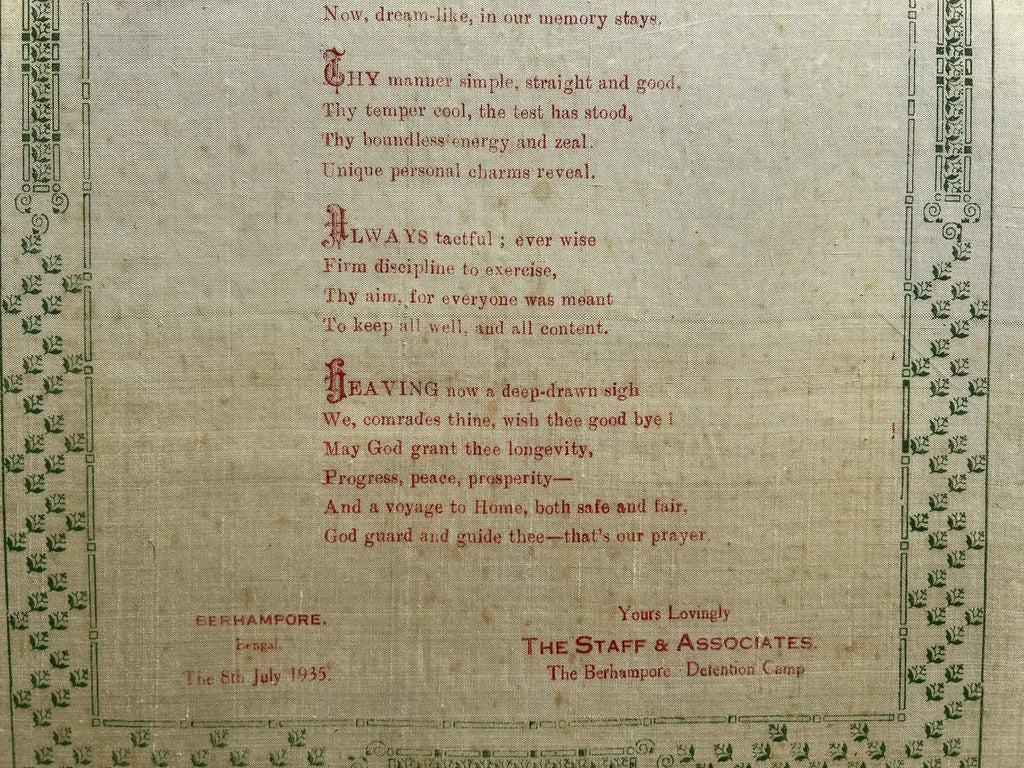 Now, dream-like, in our memory stays.
THY manner simple, straight and good,
Thy temper cool, the test has stood,
Thy boundless energy and zeal.
Unique personal charms reveal.
ALWAYS tactful ; ever wise
Firm discipline to exercise,
Thy aim, for everyone was meant
To keep all well, and all content.
HEAVING now a deep-drawn sigh
We, comrades thine, wish thee good bye !
May God grant thee longevity,
Progress, peace, prosperity—
And a voyage to Home, both safe and fair,
God guard and guide thee—that's our prayer.
BERHAMPORE,
Bengal.
The 8th July 1935.
Yours Lovingly
THE STAFF & ASSOCIATES.
The Berhampore Detention Camp